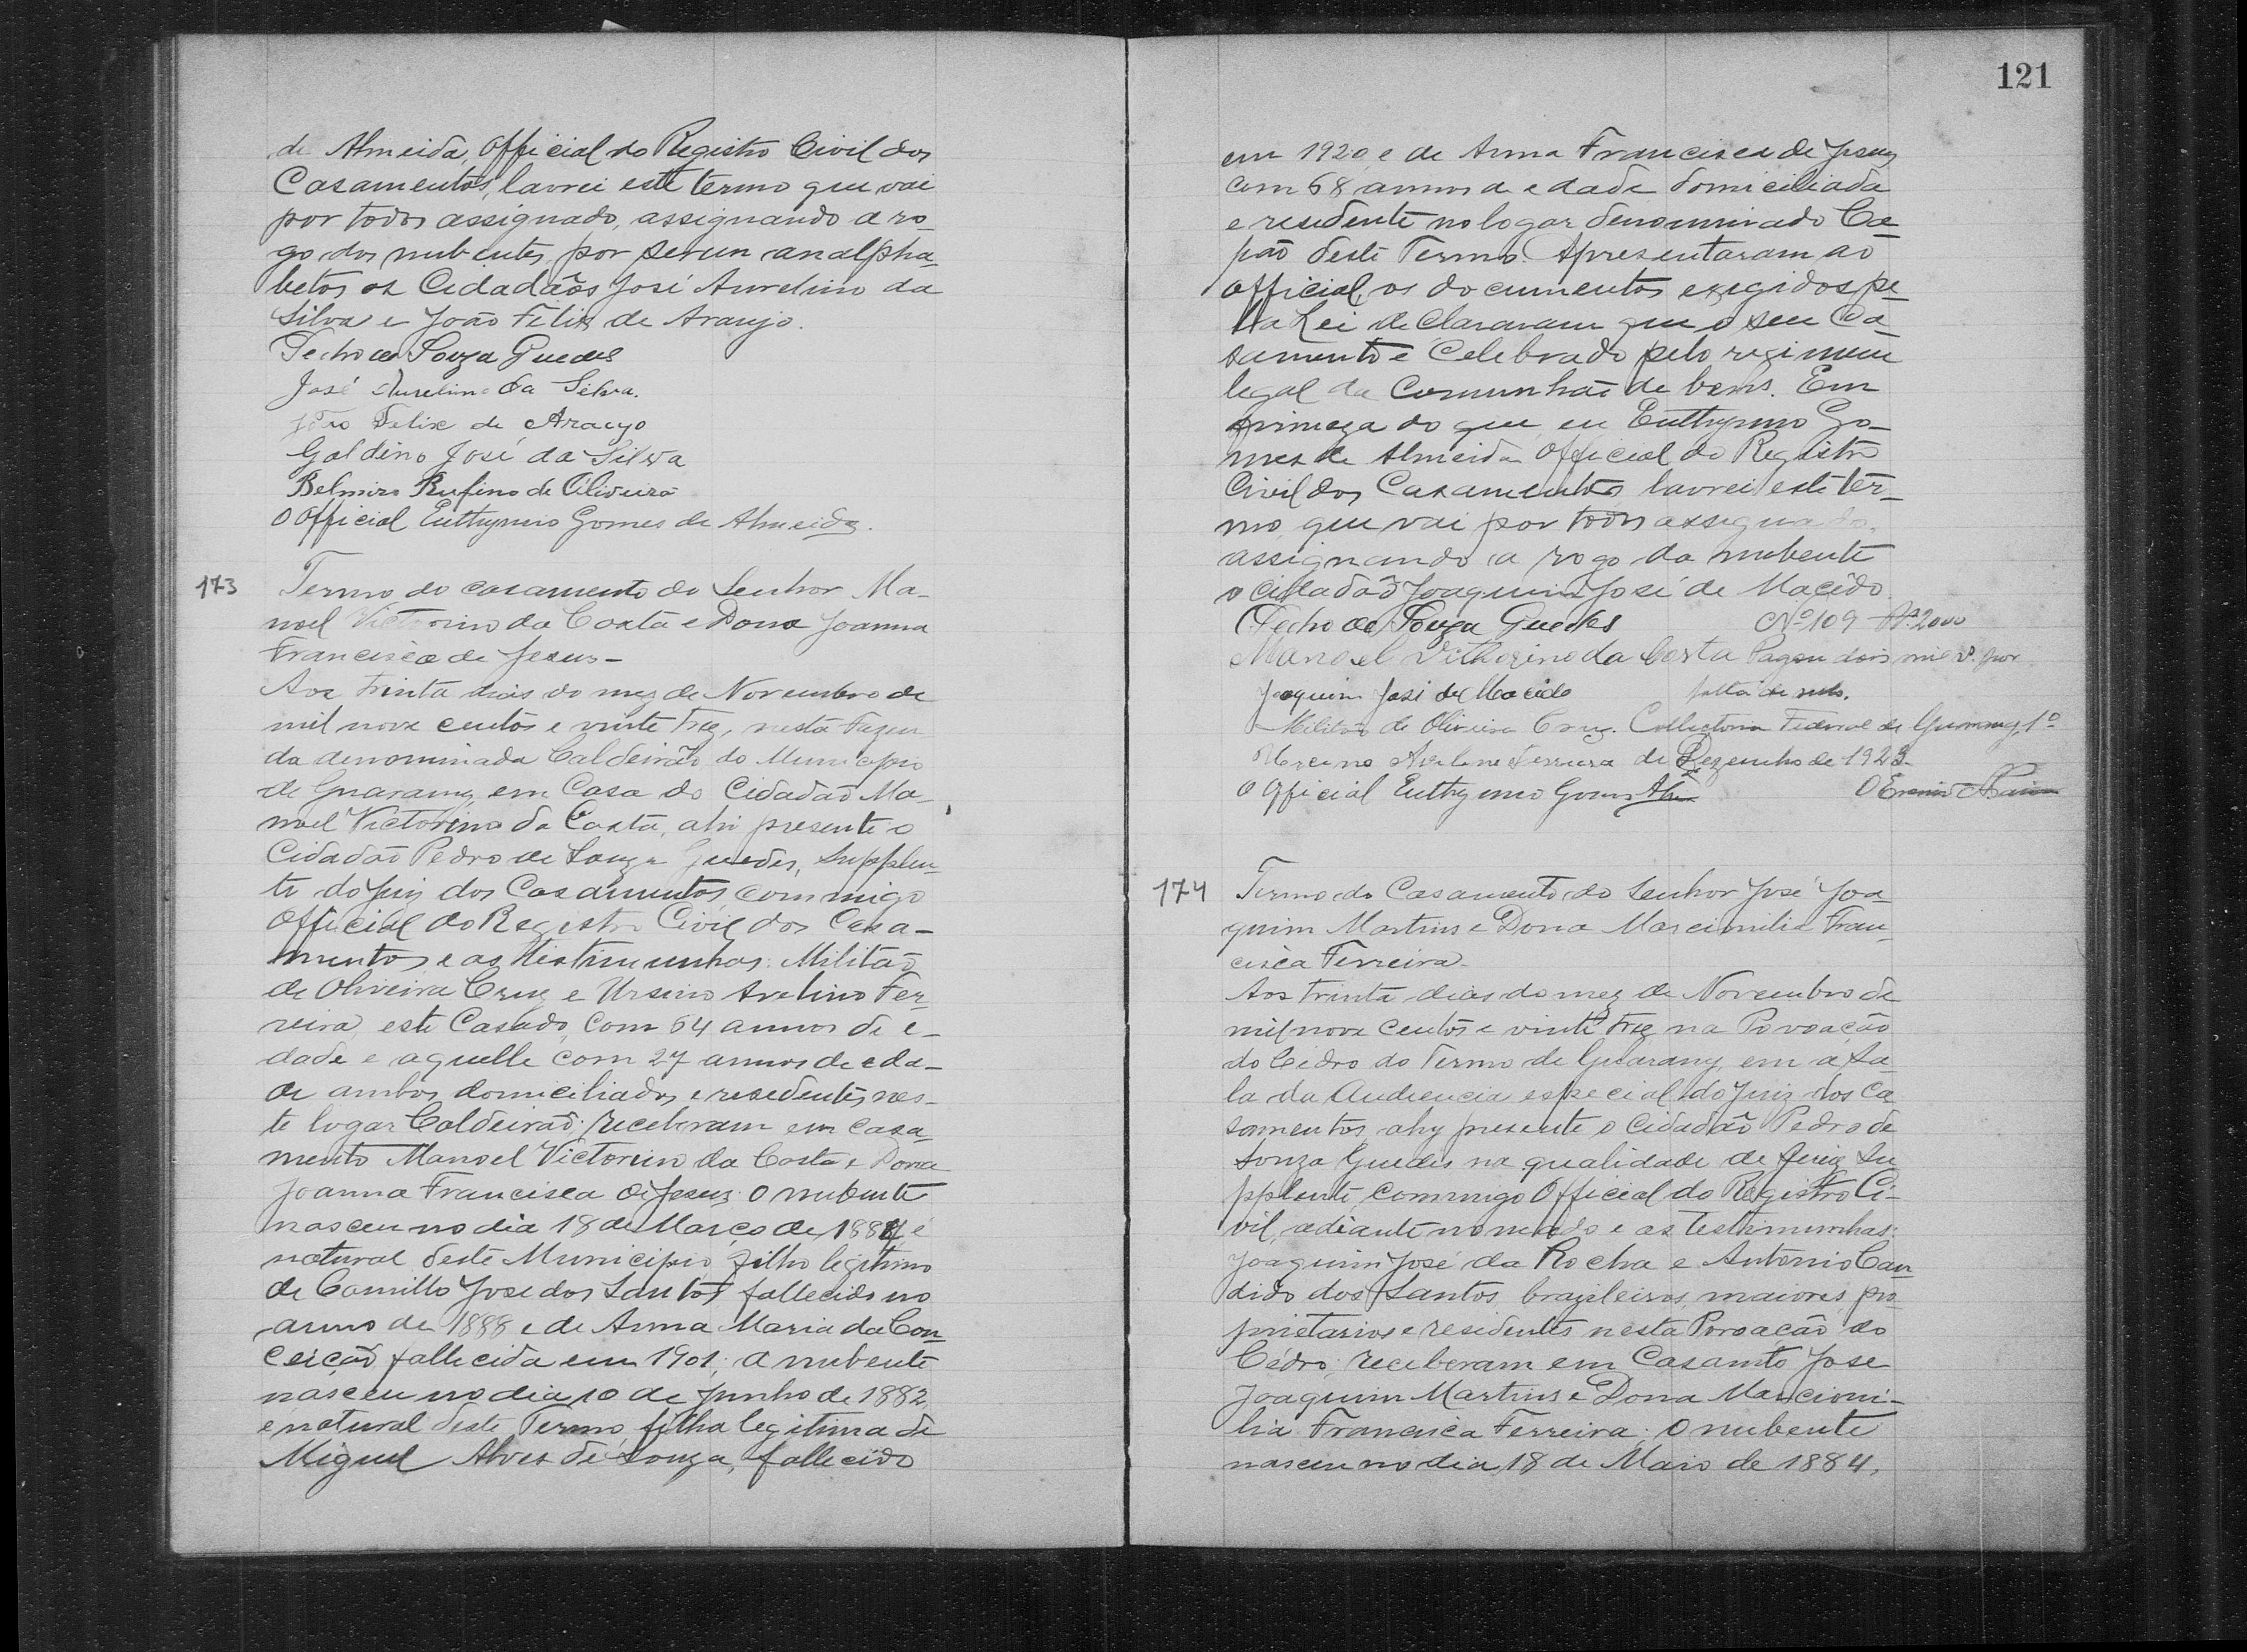 de Almeida, Official do Registro Civil dos
Casamentos, lavrei este termo que vai
por todos assignado, assignando a ro-
go dos nubentes, por serem analpha-
betos os Cidadãos José Aurelino da
Silva e João Felix de Araujo.
Pedro de Souza Guedes
José Aurelino da Silva.
João Felix de Araujo
Galdino José da Silva
Belmiro Rufino de Oliveira
O Official Euthymio Gomes de Almeida.
173
Termo do casamento do Senhor Ma-
noel Victorino da Costa e Dona Joanna
Francisca de Jesus-
Aos trinta dias do mez de Novembro de
mil nove centos e vinte trez, nesta Fazen
da denominada Caldeirão, do Municipio
de Guarany, em Casa do Cidadão Ma-
noel Victorino da Costa, ahi presente o
Cidadão Pedro de Souza Guedes, Supplen-
te do Juiz dos Casamentos, commigo
Official do Registro Civil dos Casa-
mentos e as testimunhas: Militão
de Oliveira Cruz e Ursino Avelino Fer-
reira, este Casado, com 64 annos de e-
dade e aquelle com 27 annos de eda-
de ambos domiciliados e residentes nes-
te logar Caldeirão; receberam em casa-
mento Manoel Victorino da Costa e Dona
Joanna Francisca de Jesus: O nubente
nasceu no dia 18 de Março de 1884, é
natural deste Municipio, filho legitimo
de Camillo Jose dos Santos, fallecido no
anno de 1888 e de Anna Maria da Con-
ceição, fallecida em 1901; a nubente
nasceu no dia 10 de Junho de 1882,
e natural deste Termo, filha legitima de
Miguel Alves de Souza, fallecido
121
em 1920, e de Anna Francisca de Jesus
com 68 annos de edade domiciliada
e residente no logar denominado Ca-
pão deste Termo. Apresentaram ao
official, os documentos exigidos pe-
la Lei declararam que o seu Ca-
samento é Celebrado pelo regimem
legal da Comunhão de bens. Em
firmeza do que, eu Euthymio Go-
mes de Almeida Official do Registro
Civil dos Casamentos lavrei este ter-
mo, que vai por todos assignado.
assignando a rogo da nubente
o cidadão Joaquim José de Macêdo
Pedro de Souza Guedes Nº 109 Rs. 2000
Manoel Vithorino da Costa Pagou dois mil rs. por
Joaquim José de Macedo falta de sello.
Militão de Oliveira Cruz. Collectoria Federal de Guarany, 1º
Avelino Ferreira de Dezembro de 1923.
O Official Euthymio Gomes O
174
Termo do Casamento do Senhor José Joa-
quim Martins e Dona Marcimilia Fran-
cisca Ferreira.
Aos trinta dias do mez de Novembro de
mil nove centos e vinte trez na Povoação
do Cedro do Termo de Guarany, em a Sa-
la da Audiencia especial do Juiz dos Ca
samentos, ahy presente o Cidadão Pedro de
Souza Guedes na qualidade de Juiz Su
pplente, commigo Official do Registro Ci-
vil, adiante nomeado e as testimunhas:
Joaquim José da Rocha e Antonio Can
dido dos Santos, brazileiros, maiores, pro-
prietarios e residentes nesta Povoação do
Cédro; receberam em Casamto Jose
Joaquim Martins e Dona Marcioni-
lia Francisca Ferreira; O nubente
nasceu no dia 18 de Maio de 1884,